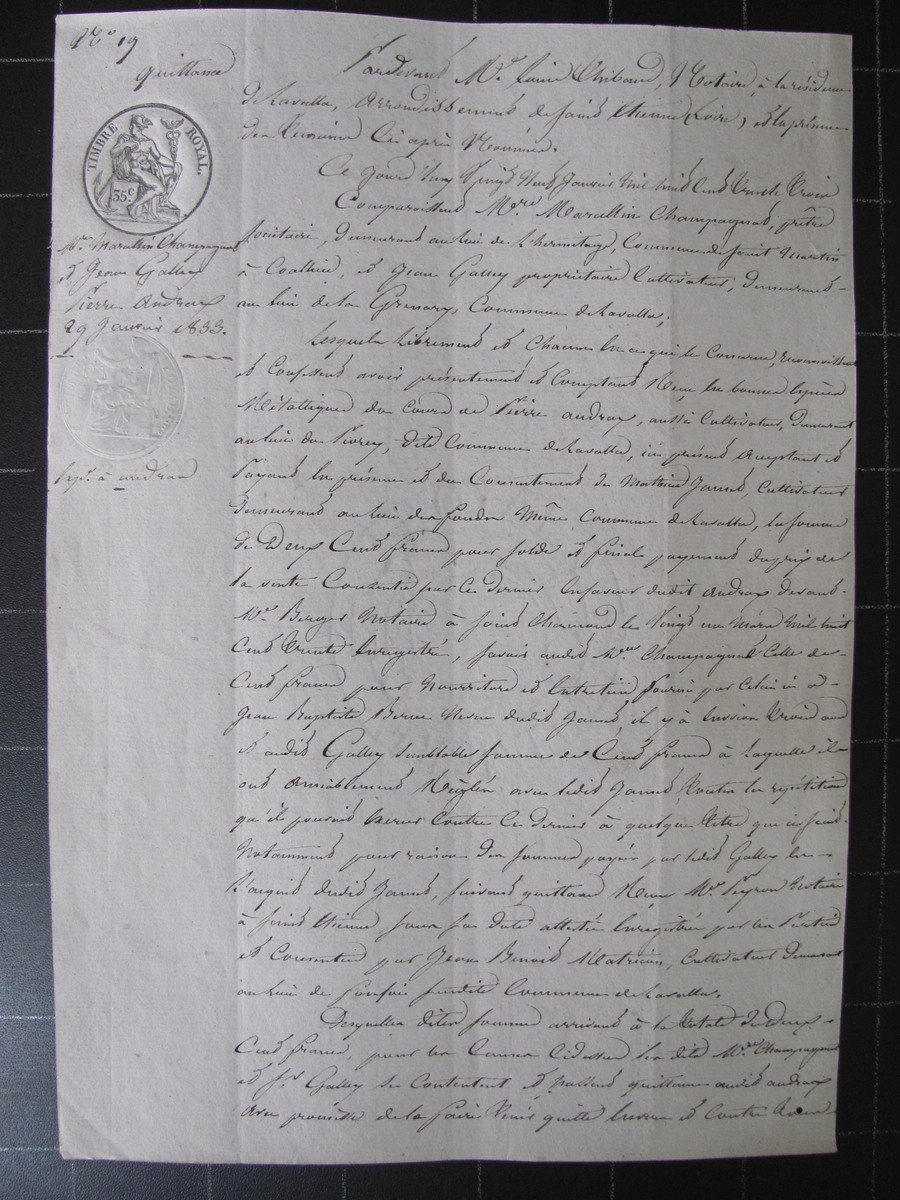 N.o 19
quittance
TIMBRE ROYAL.
35 c
Mr. Marcellin Champagnat
et Jean Galley
Pierre Andraz
29 Janvier 1833.
expn. à andraz
Pardevant Me. Louis Thibaud, Notaire, à la résidence
de Lavalla, arrondissement de Saint Etienne (Loire) et en présence
des témoins Ci après Nommés.
Ce jourd'huy Vingt Neuf Janvier mil huit Cent trente trois
Comparaissent Mre. Marcellin Champagnat, prêtre
sociétaire, demeurant au lieu de L'hermitage, Commune de Saint Martin
à Coallieu, et Jean Galley propriétaire Cultivateur, demeurant
au lieu de la Commune de Lavalla,
Lesquels librement et Chacun en ce qui le Concerne, reconnaissent
et Confessent avoir présentement et Comptant Reçu en bonnes Espèces
Métalliques du Cours de Pierre andraz, aussi Cultivateur, demeurant
au lieu du dite Commune de Lavalla, ici présent acceptant et
Payant en présence et du Consentement de Mathieu Jamet, Cultivateur
demeurant au lieu de même Commune de Lavalla, la somme
de Deux Cent francs pour solde et final payement du prix de
la vente Consentie par ce dernier en faveur dudit andraz devant
Me. Berger Notaire à Saint Chamond le Vingt un Mars Mil huit
Cent trente Enregistrée, savoir audit Mre. Champagnat Celle de
Cent francs pour Nourriture et Entretien fournis par Celui ci à
Jean Baptiste Berne Neveu dudit Jamet il y a Environ trois ans
et audit Galley semblable somme de Cent francs à laquelle ils
ont amiablement Réglés avec ledit Jamet toutes les répétitions
qu'il pouvait Exercer Contre Ce dernier à quelque titre que ce soit
Notamment pour raison des sommes payées par ledit Galley en
l'acquit dudit Jamet, suivant quittance Reçue Me. Peyron Notaire
à Saint Etienne sous sa date attestée Enregistrée par les Parties
et Consentie par Jean Benoit Matricon, Cultivateur demeurant
au lieu de susdite Commune de Lavalla.
Desquelles dites sommes arrivant à la totale de Deux
Cent francs, pour les Causes Cidessus les dits Mre. Champagnat
et Sr. Galley se Contentent et passent quittance audit andraz
avec promesse de l'en faire tenir quitte Envers et Contre tous